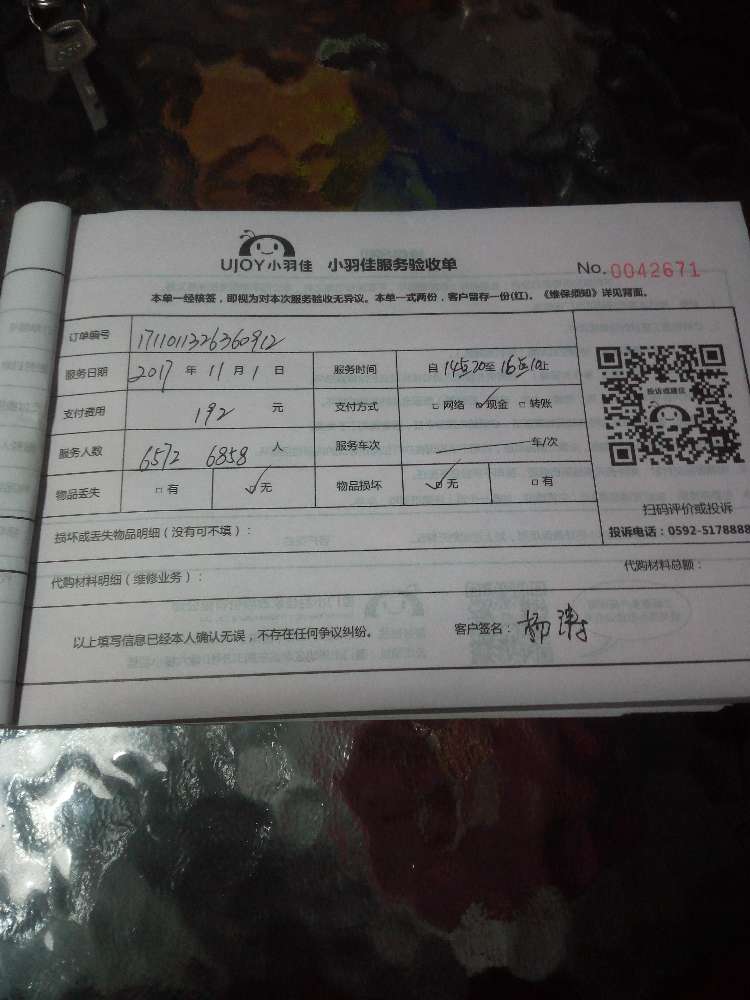 UJOY小羽佳 小羽佳服务验收单 No. 0042671
本单一经核签，即视为对本次服务验收无异议。本单一式两份，客户留存一份(红)。《维保须知》详见背面。
订单编号 1711011326360912
服务日期 2017 年 11 月 1 日 服务时间 自 14点20至 16点10止
支付费用 192 元 支付方式 □ 网络 ☑ 现金 □ 转账
服务人数 6572 6858 人 服务车次 车/次
物品丢失 □ 有 ☑ 无 物品损坏 ☑ 无 □ 有
投诉或建议
扫码评价或投诉
投诉电话：0592-5178888
损坏或丢失物品明细（没有可不填）：
代购材料明细（维修业务）： 代购材料总额：
以上填写信息已经本人确认无误，不存在任何争议纠纷。 客户签名： 杨